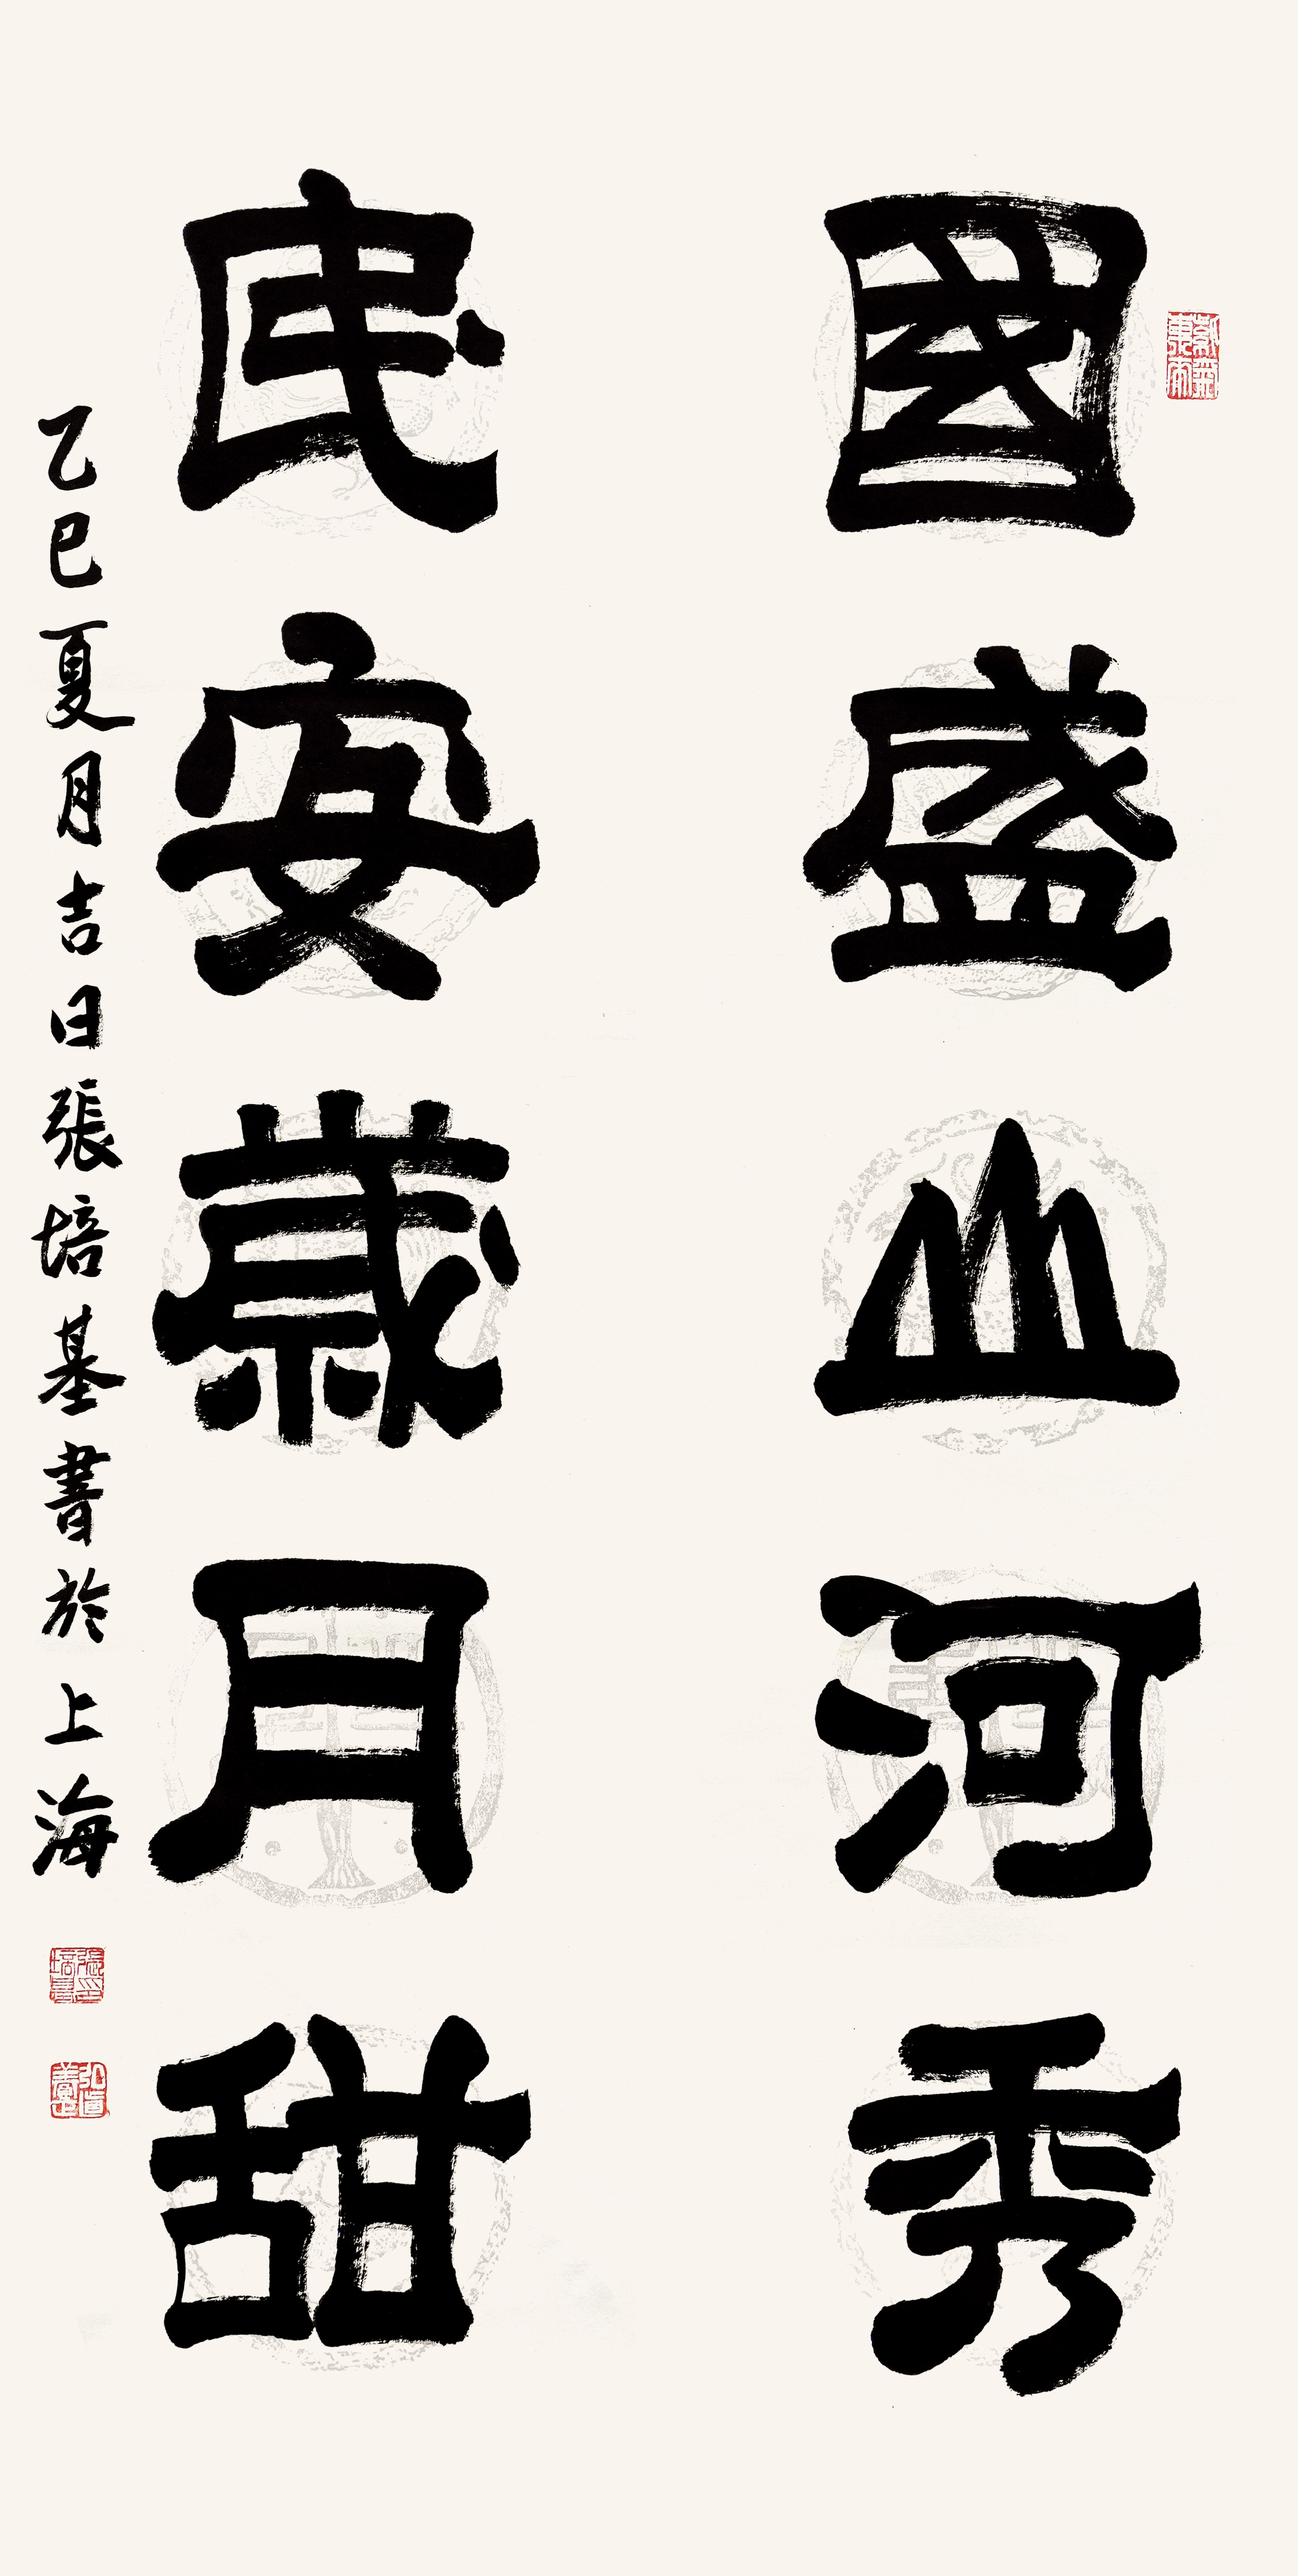 國盛山河秀
民安歲月甜
乙巳夏月吉日張培基書於上海